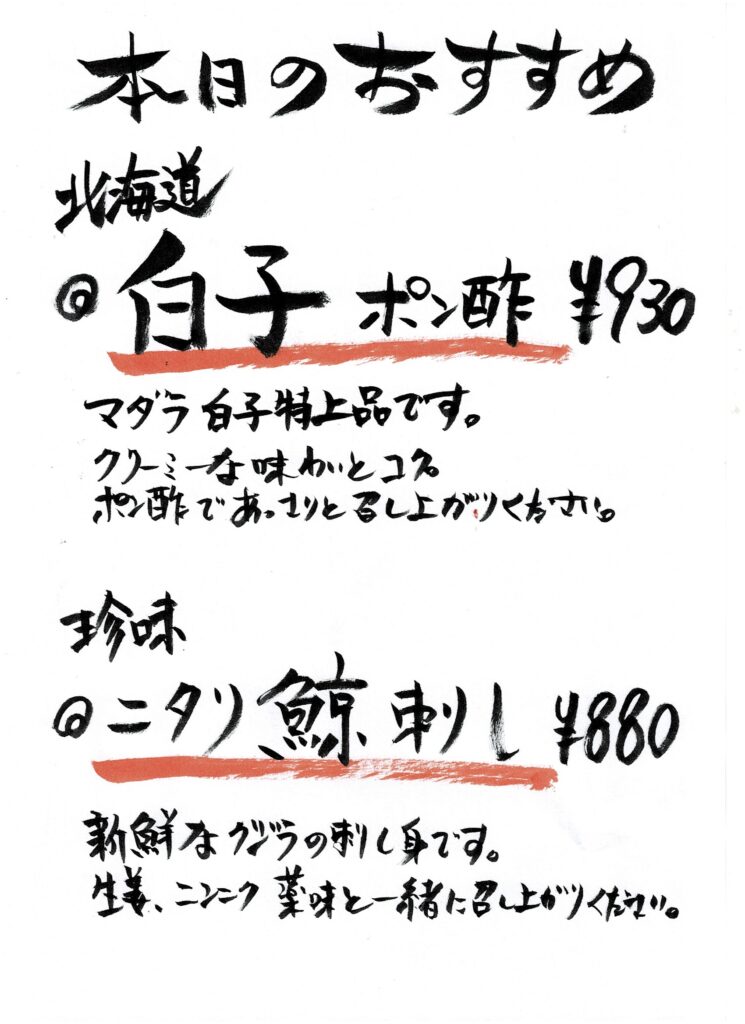 本日のおすすめ
北海道
◎白子 ポン酢 ¥930
マダラ白子特上品です。
クリーミーな味わいとコク。
ポン酢であっさりと召し上がりください。
珍味
◎ニタリ鯨刺し ¥880
新鮮なクジラの刺し身です。
生姜、ニンニク 薬味と一緒に召し上がりください。